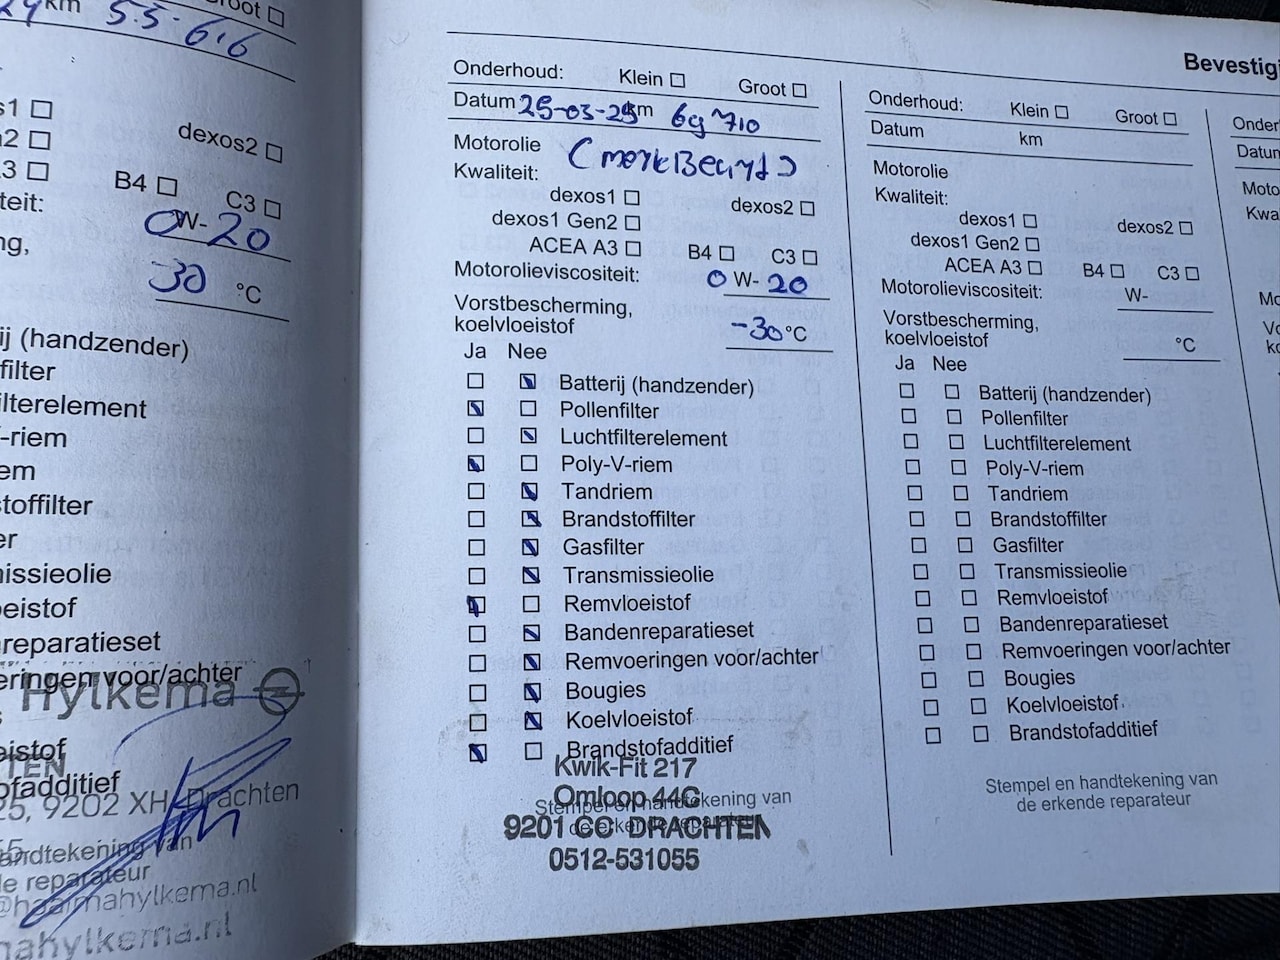 km 55.616
groot
dexos2
B4 C3
teit:
0W-20
-30 °C
ij (handzender)
filter
ilterelement
-riem
stoffilter
issieolie
reparatieset
eringen voor/achter
Hylkema
eistof
ofadditief
25, 9202 XH Drachten
andtekening van
de reparateur
@haaimahylkema.nl
mahylkema.nl
Bevestigi
Onderhoud: Klein Groot
Datum 25-03-25 km 69710
Motorolie
Kwaliteit:
dexos1 dexos2
dexos1 Gen2
ACEA A3 B4 C3
Motorolieviscositeit: 0 W- 20
Vorstbescherming,
koelvloeistof -30 °C
Ja Nee
Batterij (handzender)
Pollenfilter
Luchtfilterelement
Poly-V-riem
Tandriem
Brandstoffilter
Gasfilter
Transmissieolie
Remvloeistof
Bandenreparatieset
Remvoeringen voor/achter
Bougies
Koelvloeistof
Brandstofadditief
Kwik-Fit 217
Omloop 44C
Stempel en handtekening van
9201 CC DRACHTEN
de erkende reparateur
0512-531055
Onderhoud: Klein Groot
Datum km
Motorolie
Kwaliteit:
dexos1 dexos2
dexos1 Gen2
ACEA A3 B4 C3
Motorolieviscositeit: W-
Vorstbescherming,
koelvloeistof °C
Ja Nee
Batterij (handzender)
Pollenfilter
Luchtfilterelement
Poly-V-riem
Tandriem
Brandstoffilter
Gasfilter
Transmissieolie
Remvloeistof
Bandenreparatieset
Remvoeringen voor/achter
Bougies
Koelvloeistof
Brandstofadditief
Stempel en handtekening van
de erkende reparateur
Onder
Datum
Moto
Kwa